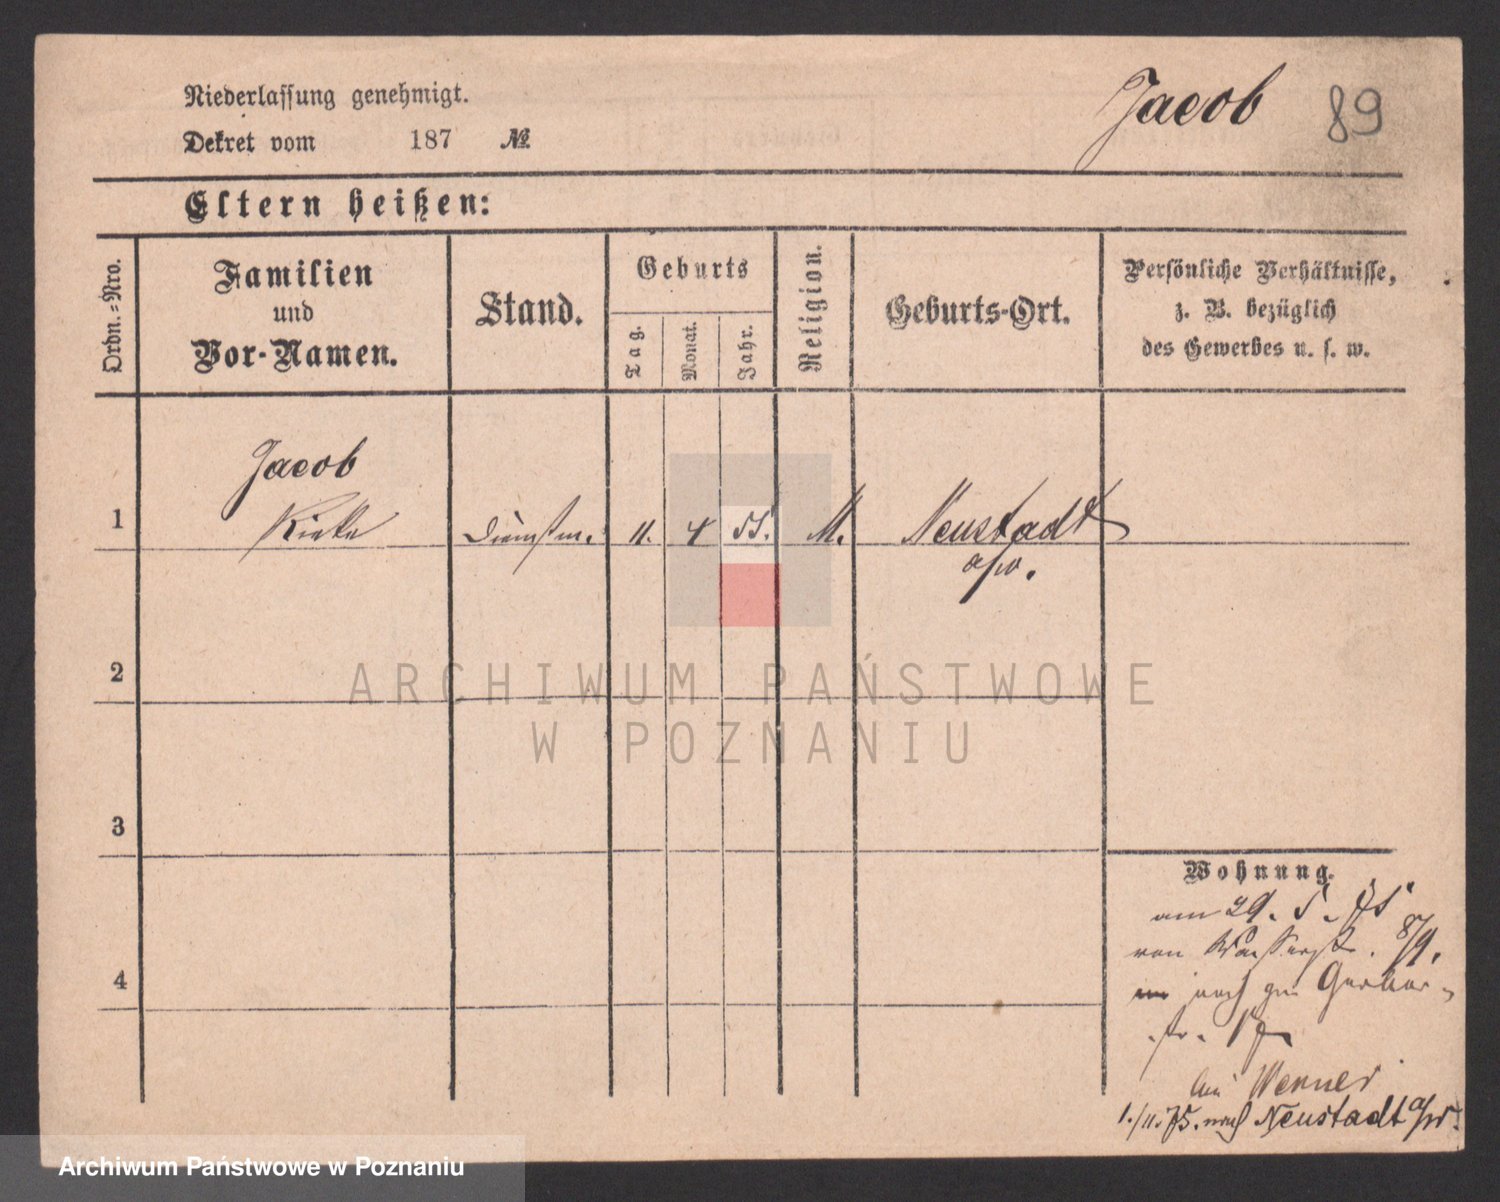 Niederlassung genehmigt.
Dekret vom 187 №
Jacob 89
Eltern heißen:
Ordn.-Nro.
Familien
und
Vor-Namen.
Stand.
Geburts
Tag.
Monat.
Jahr.
Religion.
Geburts-Ort.
Persönliche Verhältnisse,
z. B. bezüglich
des Gewerbes u. s. w.
Jacob
1 Rieke 11. 4 55. M. Neustadt
a/w.
2
ARCHIWUM PAŃSTWOWE
W POZNANIU
3
Wohnung.
am 29. 5. 75
von Wasserstr. 8/9.
nach Gerber-
str.
bei Werner
1./11. 75. nach Neustadt a/W.
4
Archiwum Państwowe w Poznaniu